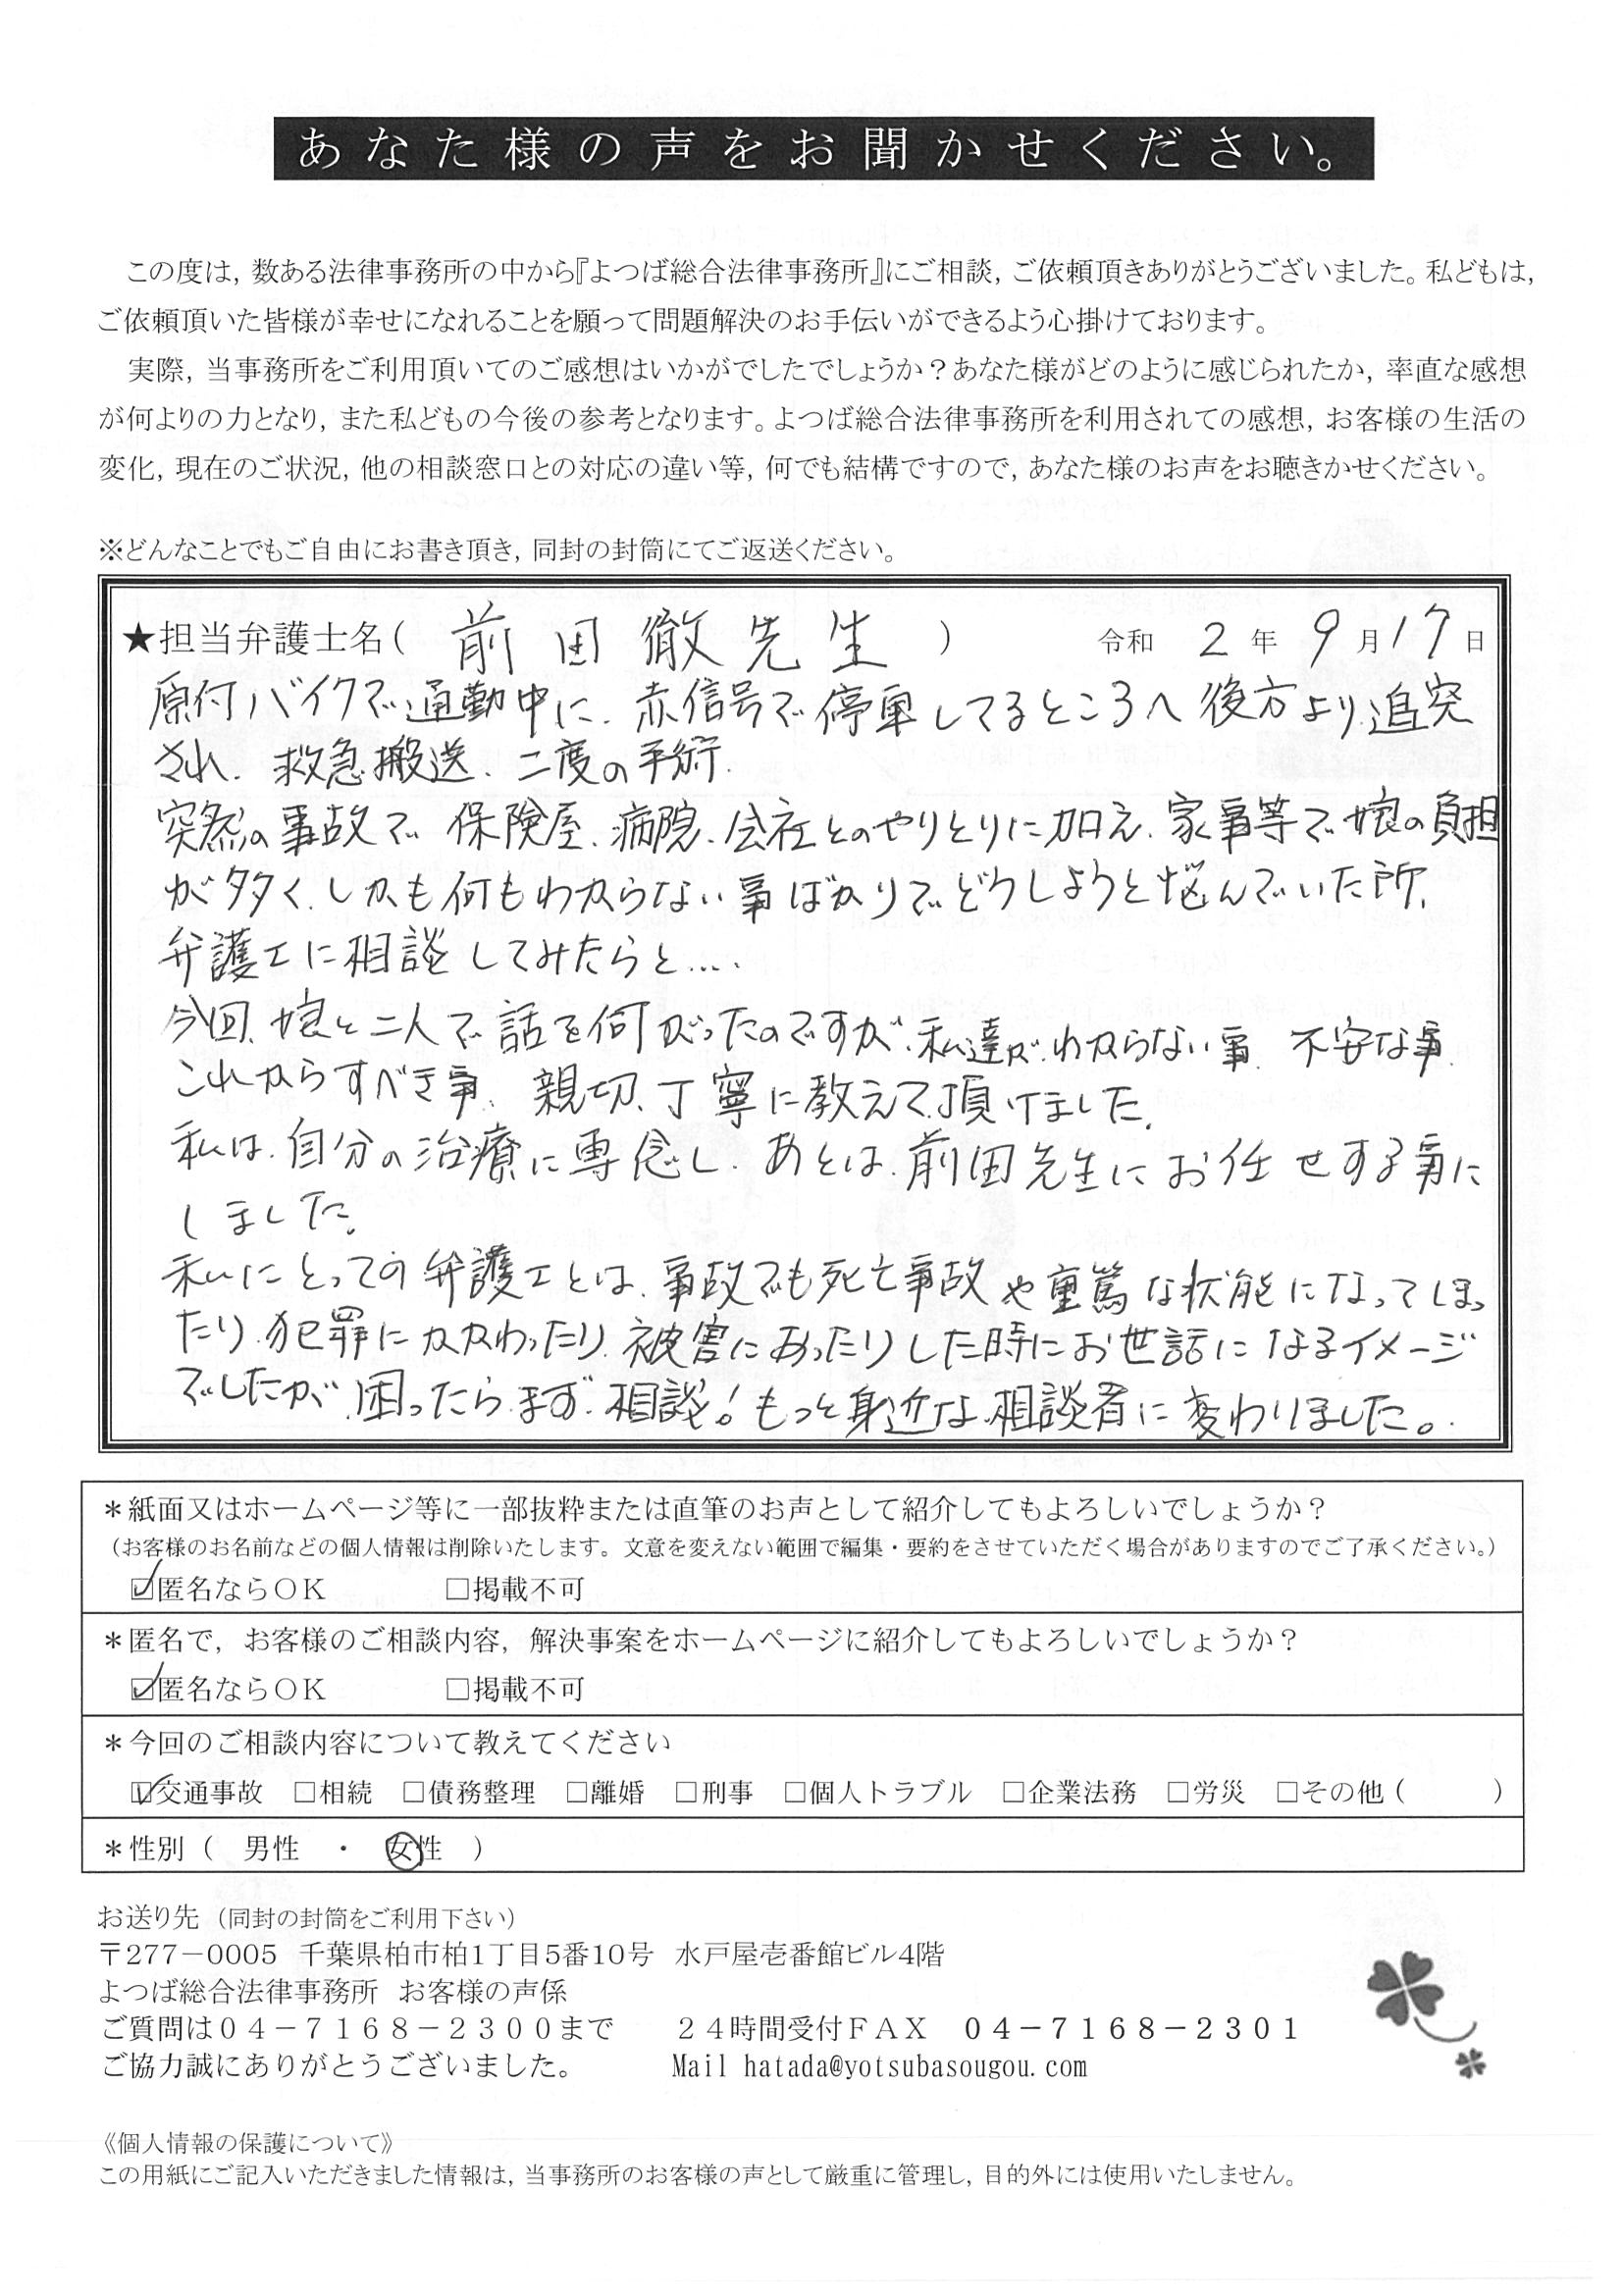 あなた様の声をお聞かせください。
この度は,数ある法律事務所の中から『よつば総合法律事務所』にご相談,ご依頼頂きありがとうございました。私どもは,
ご依頼頂いた皆様が幸せになれることを願って問題解決のお手伝いができるよう心掛けております。
実際,当事務所をご利用頂いてのご感想はいかがでしたでしょうか？あなた様がどのように感じられたか,率直な感想
が何よりの力となり,また私どもの今後の参考となります。よつば総合法律事務所を利用されての感想,お客様の生活の
変化,現在のご状況,他の相談窓口との対応の違い等,何でも結構ですので,あなた様のお声をお聴きかせください。
※どんなことでもご自由にお書き頂き,同封の封筒にてご返送ください。
★担当弁護士名（ 前田徹先生 ） 令和 2 年 9 月 17 日
原付バイクで通勤中に、赤信号で停車してるところへ後方より追突
され、救急搬送、二度の手術。
突然の事故で 保険屋、病院、会社とのやりとりに加え、家事等で娘の負担
が多く、しかも何もわからない事ばかりでどうしようと悩んでいた所、
弁護士に相談してみたらと….
今回、娘と二人で話を伺がったのですが、私達がわからない事、不安な事、
これからすべき事、親切、丁寧に教えて頂けました。
私は、自分の治療に専念し、あとは、前田先生にお任せする事に
しました。
私にとっての弁護士とは、事故でも死亡事故や重篤な状態になってしまっ
たり、犯罪にかかわったり、被害にあったりした時にお世話になるイメージ
でしたが、困ったらまず、相談！もっと身近な相談者に変わりました。
＊紙面又はホームページ等に一部抜粋または直筆のお声として紹介してもよろしいでしょうか？
（お客様のお名前などの個人情報は削除いたします。文意を変えない範囲で編集・要約をさせていただく場合がありますのでご了承ください。）
☑匿名ならＯＫ □掲載不可
＊匿名で，お客様のご相談内容，解決事案をホームページに紹介してもよろしいでしょうか？
☑匿名ならＯＫ □掲載不可
＊今回のご相談内容について教えてください
☑交通事故 □相続 □債務整理 □離婚 □刑事 □個人トラブル □企業法務 □労災 □その他（ ）
＊性別（ 男性 ・ 女性 ）
お送り先（同封の封筒をご利用下さい）
〒277－0005 千葉県柏市柏1丁目5番10号 水戸屋壱番館ビル4階
よつば総合法律事務所 お客様の声係
ご質問は０４－７１６８－２３００まで ２４時間受付ＦＡＸ ０４－７１６８－２３０１
ご協力誠にありがとうございました。 Mail hatada@yotsubasougou.com
《個人情報の保護について》
この用紙にご記入いただきました情報は,当事務所のお客様の声として厳重に管理し,目的外には使用いたしません。